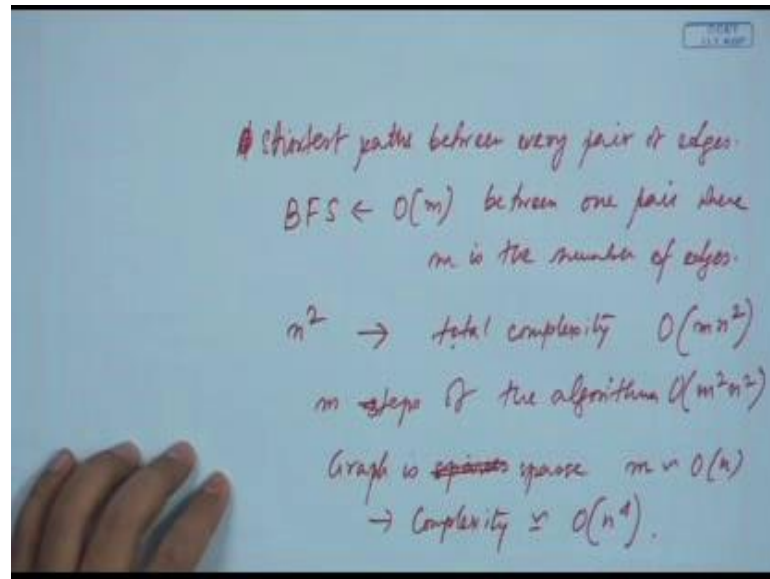 Shortest paths between every pair of edges.
BFS ← O(m) between one pair where
m is the number of edges.
n² → total complexity O(mn²)
m steps of the algorithm O(m²n²)
Graph is sparse m ~ O(n)
→ Complexity ≃ O(n⁴).